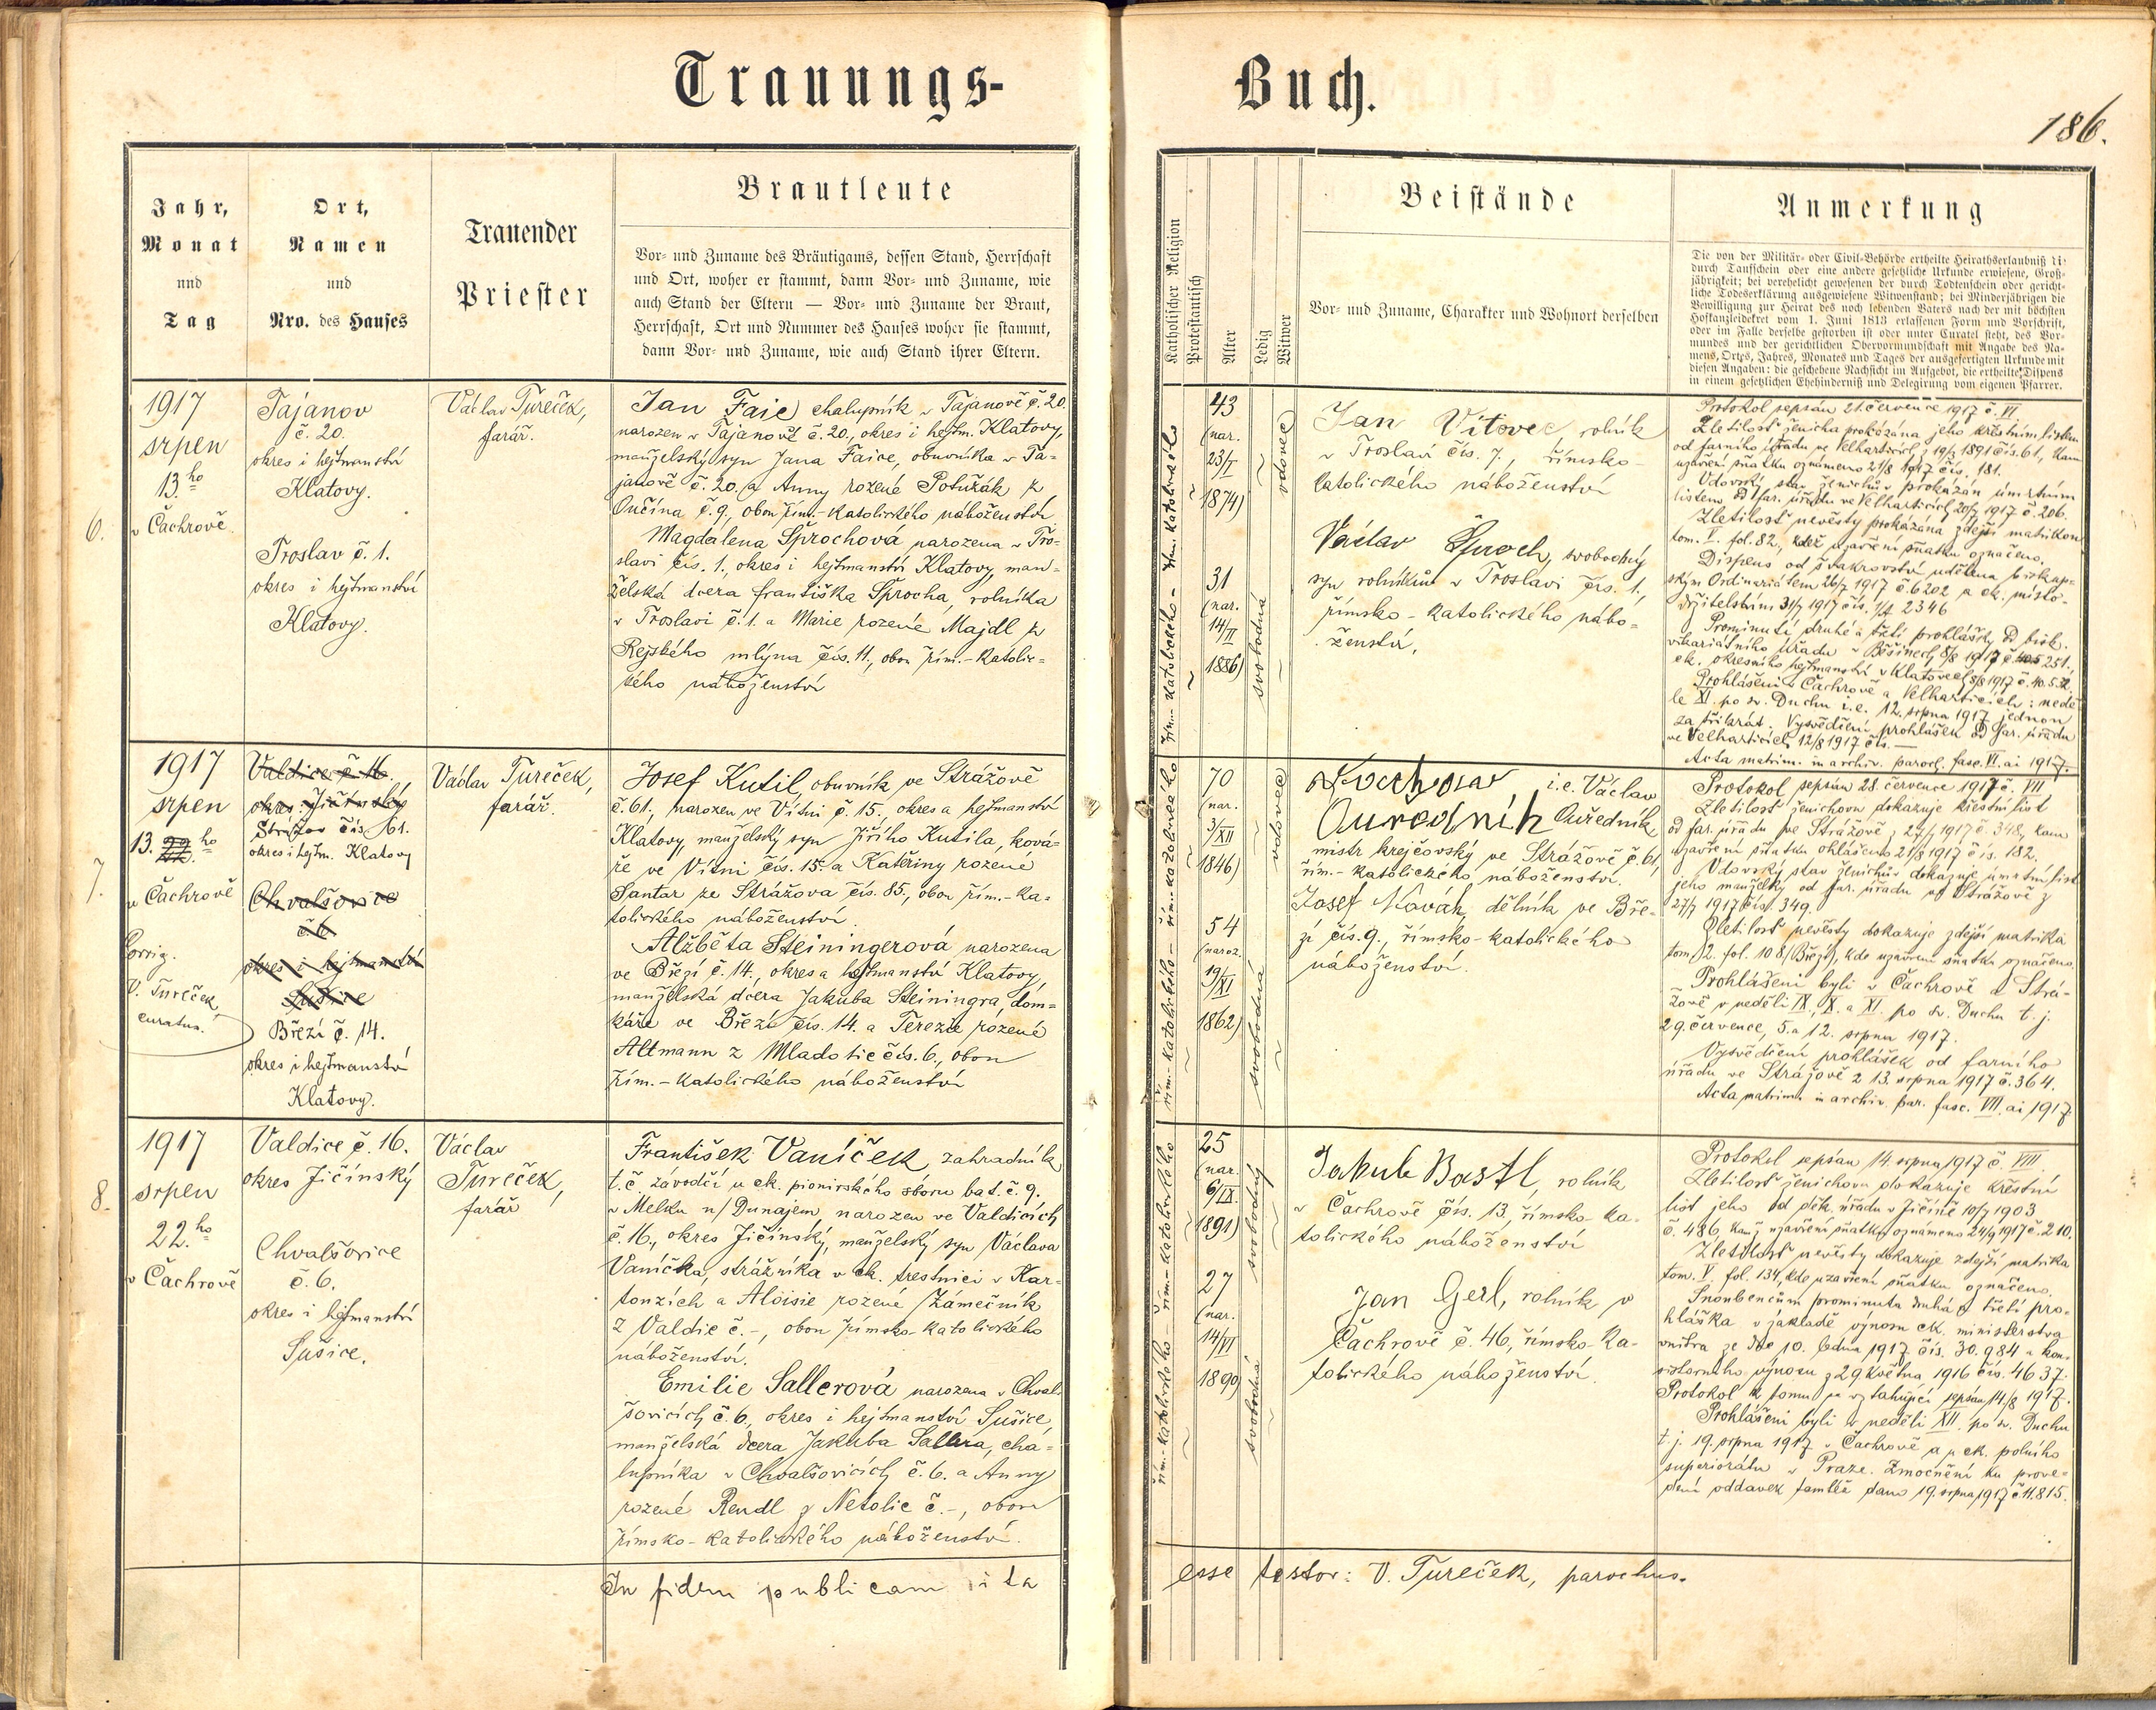 Trauungs-
Buch.
186.
Jahr,
Monat
und
Tag
Ort,
Namen
und
Nro. des Hauses
Trauender
Priester
Brautleute
Vor- und Zuname des Bräutigams, dessen Stand, Herrschaft
und Ort, woher er stammt, dann Vor- und Zuname, wie
auch Stand der Eltern — Vor- und Zuname der Braut,
Herrschaft, Ort und Nummer des Hauses woher sie stammt,
dann Vor- und Zuname, wie auch Stand ihrer Eltern.
Katholischer Religion
Protestantisch
Alter
Ledig
Witwer
Beistände
Vor- und Zuname, Charakter und Wohnort derselben
Anmerkung
Die von der Militär- oder Civil-Behörde ertheilte Heirathserlaubniß
durch Taufschein oder eine andere gesetzliche Urkunde erwiesene, Groß-
jährigkeit; bei verehelicht gewesenen der durch Todtenschein oder gericht-
liche Todeserklärung ausgewiesene Witwenstand; bei Minderjährigen die
Bewilligung zur Heirat des noch lebenden Vaters nach der mit höchsten
Hofkanzleidekret vom 1. Juni 1813 erlassenen Form und Vorschrift,
oder im Falle derselbe gestorben ist oder unter Curatel steht, des Vor-
mundes und der gerichtlichen Obervormundschaft mit Angabe des Na-
mens, Ortes, Jahres, Monates und Tages der ausgefertigten Urkunde mit
diesen Angaben: die geschehene Nachsicht im Aufgebot, die ertheilte Dispens
in einem gesetzlichen Ehehinderniß und Delegirung vom eigenen Pfarrer.
6.
1917
srpen
13.ho
v Čachrově.
Tajanov
č. 20.
okres i hejtmanství
Klatovy.
Troslav č. 1.
okres i hejtmanství
Klatovy.
Václav Tureček,
farář.
Jan Faic chalupník v Tajanově č. 20.
narozen v Tajanově č. 20., okres i hejtm. Klatovy,
manželský syn Jana Faice, obuvníka v Ta-
janově č. 20. a Anny rozené Potužák z
Ončína č. 9., obou řím.-katolického náboženství
Magdalena Šprochová narozena v Tro-
slavi čís. 1., okres i hejtmanství Klatovy, man-
želská dcera Františka Šprocha, rolníka
v Troslavi č. 1. a Marie rozené Majdl z
Rejského mlýna čís. 11., obou řím.-katolic-
kého náboženství
řím.-katolického
43
(nar.
23/I
1874)
vdovec
31
(nar.
14/II
1886)
svobodná
Jan Vítovec rolník
v Troslavi čís. 7., římsko-
katolického náboženství
Václav Šproch, svobodný
syn rolníkův v Troslavi čís. 1.,
římsko-katolického nábo-
ženství.
Protokol sepsán 21. července 1917 č. VI.
Zletilosť ženicha prokázána jeho křestním listem
od farního úřadu ve Velharticích z 19/3 1891 čís. 61, kam
uzavření sňatku oznámeno 21/8 1917 čís. 181.
Vdovský stav ženichův prokázán úmrtním
listem od far. úřadu ve Velharticích 20/7 1917 č. 206.
Zletilosť nevěsty prokázána zdejší matrikou
tom. I. fol. 82, kdež uzavření sňatku označeno.
Dispens od švakrovství udělena biskup-
ským Ordinariátem 26/7 1917 č. 6202 a ck. místo-
držitelstvím 31/7 1917 čís. 2346
Prominutí druhé a třetí prohlášky od bisk.
vikariátního úřadu v Běšinech 8/8 1917 č. 251.,
ck. okresního hejtmanství v Klatovech 8/8 1917
Prohlášeni v Čachrově a Velharticích: nedě-
le XI. po sv. Duchu i.e. 12. srpna 1917 jednou
za třikrát. Vysvědčení prohlášek od far. úřadu
ve Velharticích 12/8 1917 čís. —
Acta matrim. in archiv. paroch. fasc. VI. ai 1917.
7.
1917
srpen
13. 22. ho
v Čachrově
Corrig.
V. Tureček
curatus.
Valdice č. 16.
okres Jičínský
Strážov čís. 61.
okres i hejtm. Klatovy
Chvalšovice
č. 6.
okres i hejtmanství
Sušice
Březí č. 14.
okres i hejtmanství
Klatovy.
Václav Tureček,
farář.
Josef Kutil, obuvník ve Strážově
č. 61., narozen ve Vítni č. 15., okres a hejtmanství
Klatovy, manželský syn Jiřího Kutila, ková-
ře ve Vítni čís. 15. a Kateřiny rozené
Šantar ze Strážova čís. 85., obou řím.-ka-
tolického náboženství
Alžběta Steiningerová narozena
ve Březí č. 14., okres a hejtmanství Klatovy,
manželská dcera Jakuba Steiningra, dom-
káře ve Březí čís. 14. a Terezie rozené
Altmann z Mladotic čís. 6., obou
řím.-katolického náboženství
řím.-katolického – řím.-katolického
70
(nar.
3/XII
1846)
vdovec
54
(naroz.
19/XI
1862)
svobodná
i.e. Václav
Ouředník
mistr krejčovský ve Strážově č. 61,
řím.-katolického náboženství.
Josef Novák, dělník ve Bře-
zí čís. 9., římsko-katolického
náboženství.
Protokol sepsán 28. července 1917 č. VII
Zletilosť ženichovu dokazuje křestní list
od far. úřadu ve Strážově z 27/7 1917 č. 348, kam
uzavření sňatku ohlášeno 21/8 1917 čís. 182.
Vdovský stav ženichův dokazuje úmrtní list
jeho manželky od far. úřadu ve Strážově z
27/7 1917 čís. 349.
Zletilosť nevěsty dokazuje zdejší matrika
tom. 2. fol. 108 (Březí), kde uzavření sňatku označeno.
Prohlášeni byli v Čachrově a Strá-
žově v neděli IX., X. a XI. po sv. Duchu t. j.
29. července, 5. a 12. srpna 1917.
Vysvědčení prohlášek od farního
úřadu ve Strážově z 13. srpna 1917 č. 364.
Acta matrim. in archiv. par. fasc. VII. ai 1917.
8.
1917
srpen
22.ho
v Čachrově
Valdice č. 16.
okres Jičínský
Chvalšovice
č. 6.
okres i hejtmanství
Sušice.
Václav
Tureček,
farář
František Vaníček, zahradník
t. č. závodčí u ck. pionirského sboru bat. č. 9.
v Melku n/Dunajem, narozen ve Valdicích
č. 16., okres Jičínský, manželský syn Václava
Vaníčka, strážníka v ck. trestnici v Kar-
touzích a Aloisie rozené Zámečník
z Valdic č. -, obou římsko-katolického
náboženství.
Emilie Sallerová narozena v Chval-
šovicích č. 6., okres i hejtmanství Sušice,
manželská dcera Jakuba Sallera, cha-
lupníka v Chvalšovicích č. 6. a Anny
rozené Rendl z Netolic č. -, obou
římsko-katolického náboženství.
řím.-katolického – řím.-katolického
25
(nar.
6/IX.
1891)
svobodný
27
(nar.
14/VI
1890)
svobodná
Jakub Bastl, rolník
v Čachrově čís. 13, římsko-ka-
tolického náboženství
Jan Gerl, rolník v
Čachrově č. 46, římsko-ka-
tolického náboženství.
Protokol sepsán 14. srpna 1917 č. VIII.
Zletilosť ženichovu dokazuje křestní
list jeho od děk. úřadu v Jičíně 10/7 1903
č. 486, kamž uzavření sňatku oznámeno 24/9 1917 č. 210.
Zletilosť nevěsty dokazuje zdejší matrika
tom. V. fol. 134, kde uzavření sňatku označeno.
Snoubencům prominuta druhá a třetí pro-
hláška v základě výnosu ck. ministerstva
vnitra ze dne 10. ledna 1917 čís. 30.984 a kon-
sistorního výnosu z 29. května 1916 čís. 4637.
Protokol k tomu se vztahující sepsán 14./8 1917.
Prohlášeni byli v neděli XII. po sv. Duchu
t. j. 19. srpna 1917 v Čachrově a u ck. polního
superiorátu v Praze. Zmocnění ku prove-
dení oddavek tamtéž dáno 19. srpna 1917 č. 11.815.
In fidem publicam ita
esse testor: V. Tureček, parochus.